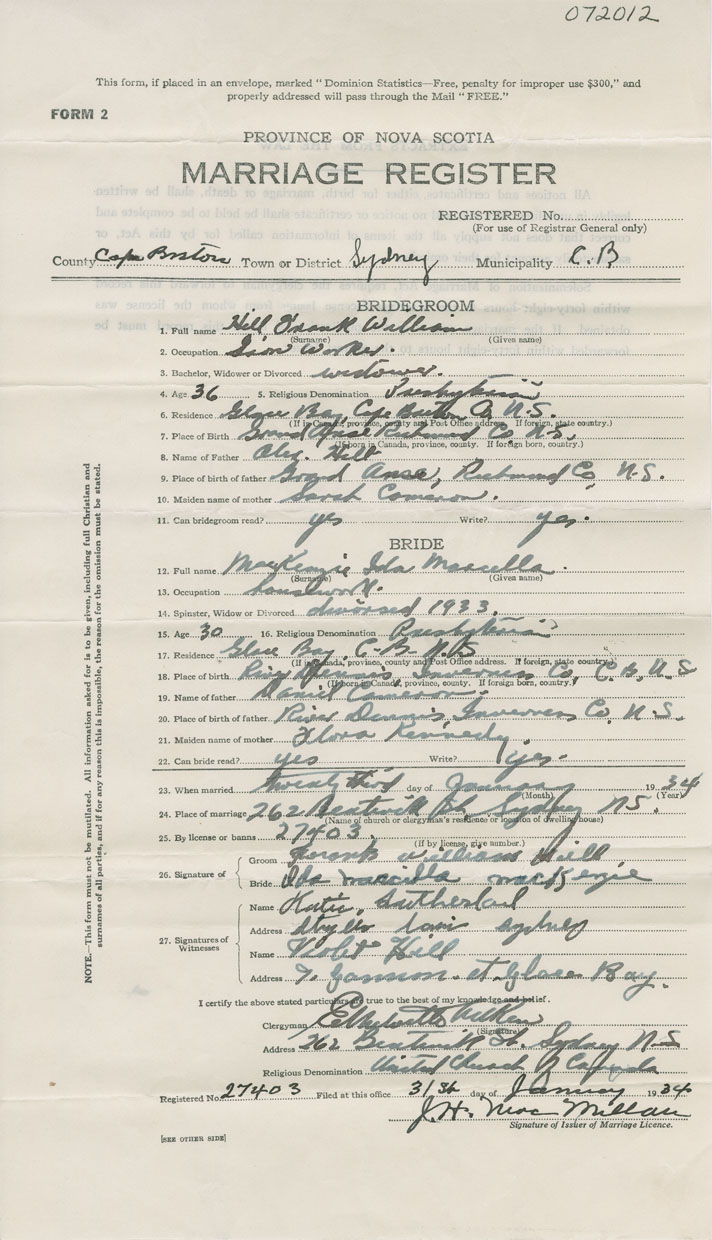 072012
This form, if placed in an envelope, marked "Dominion Statistics—Free, penalty for improper use $300," and
properly addressed will pass through the Mail "FREE."
FORM 2
PROVINCE OF NOVA SCOTIA
MARRIAGE REGISTER
REGISTERED No.
(For use of Registrar General only)
County Cape Breton Town or District Sydney Municipality C.B
BRIDEGROOM
1. Full name Hill Frank William
(Surname) (Given name)
2. Occupation Iron Worker.
3. Bachelor, Widower or Divorced widower.
4. Age 36 5. Religious Denomination Presbyterian
6. Residence Glace Bay, Cape Breton Co N.S.
(If in Canada, province, county and Post Office address. If foreign, state country.)
7. Place of Birth Grand Anse Richmond Co N.S.
(If born in Canada, province, county. If foreign born, country.)
8. Name of Father Alex. Hill
9. Place of birth of father Grand Anse, Richmond Co, N.S.
10. Maiden name of mother Sarah Cameron.
11. Can bridegroom read? yes Write? yes.
BRIDE
12. Full name MacKenzie Ida Marcella.
(Surname) (Given name)
13. Occupation housework.
14. Spinster, Widow or Divorced divorced 1933.
15. Age 30 16. Religious Denomination Presbyterian
17. Residence Glace Bay, C.B. N.S
(If in Canada, province, county and Post Office address. If foreign, state country.)
18. Place of birth River Dennis, Inverness Co, C.B, N.S
(If born in Canada, province, county. If foreign born, country.)
19. Name of father Daniel Cameron.
20. Place of birth of father River Dennis, Inverness Co. N.S.
21. Maiden name of mother Flora Kennedy.
22. Can bride read? yes Write? yes.
23. When married twenty third day of January 1934
(Month) (Year)
24. Place of marriage 262 St, Sydney N.S.
(Name of church or clergyman's residence or location of dwelling house)
25. By license or banns 27403.
(If by license, give number.)
26. Signature of
Groom Frank William Hill
Bride Ida Marcilla MacKenzie
27. Signatures of Witnesses
Name Katie Sutherland
Address Sydney
Name Violet Hill
Address 7. Gannon. st Glace Bay.
I certify the above stated particulars are true to the best of my knowledge and belief.
Clergyman Aitken
(Signature)
Address 262 St. Sydney N.S
Religious Denomination United Church of Canada
Registered No. 27403 Filed at this office 31st day of January 1934
J.H. MacMillan
Signature of Issuer of Marriage Licence.
[SEE OTHER SIDE]
NOTE.—This form must not be mutilated. All information asked for is to be given, including full Christian and
surnames of all parties, and if for any reason this is impossible, the reason for the omission must be stated.